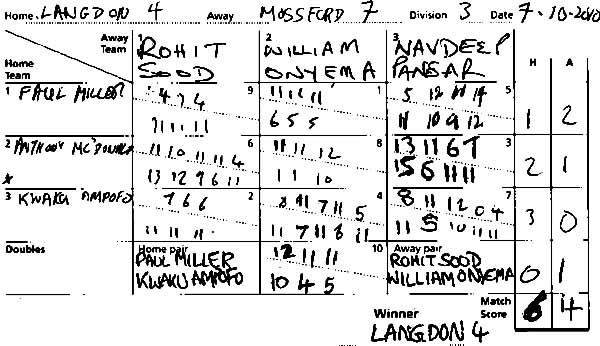 Home LANGDON 4 Away MOSSFORD 7 Division 3 Date 7-10-2010
Away Team
Home Team
1 ROHIT SOOD
2 WILLIAM ONYEMA
3 NAVDEEP PANSAR
H A
1 PAUL MILLER
4 7 4 9
11 11 11 1
5 12 11 14 5
11 11 11
6 5 5
11 10 9 12
1 2
2 ANTHONY MCDONALD
11 10 11 11 4 6
11 11 12 8
13 11 6 7 3
13 12 9 6 11
1 1 10
15 6 11 11
2 1
* 3 KWAKU AMPOFO
7 6 6 2
8 11 7 11 5 4
8 11 12 0 4 7
11 11 11
11 7 11 8 11
11 5 10 11 11
3 0
Doubles
Home pair
PAUL MILLER
KWAKU AMPOFO
12 11 11 10
10 4 5
Away pair
ROHIT SOOD
WILLIAM ONYEMA
0 1
Match Score 6 4
Winner
LANGDON 4